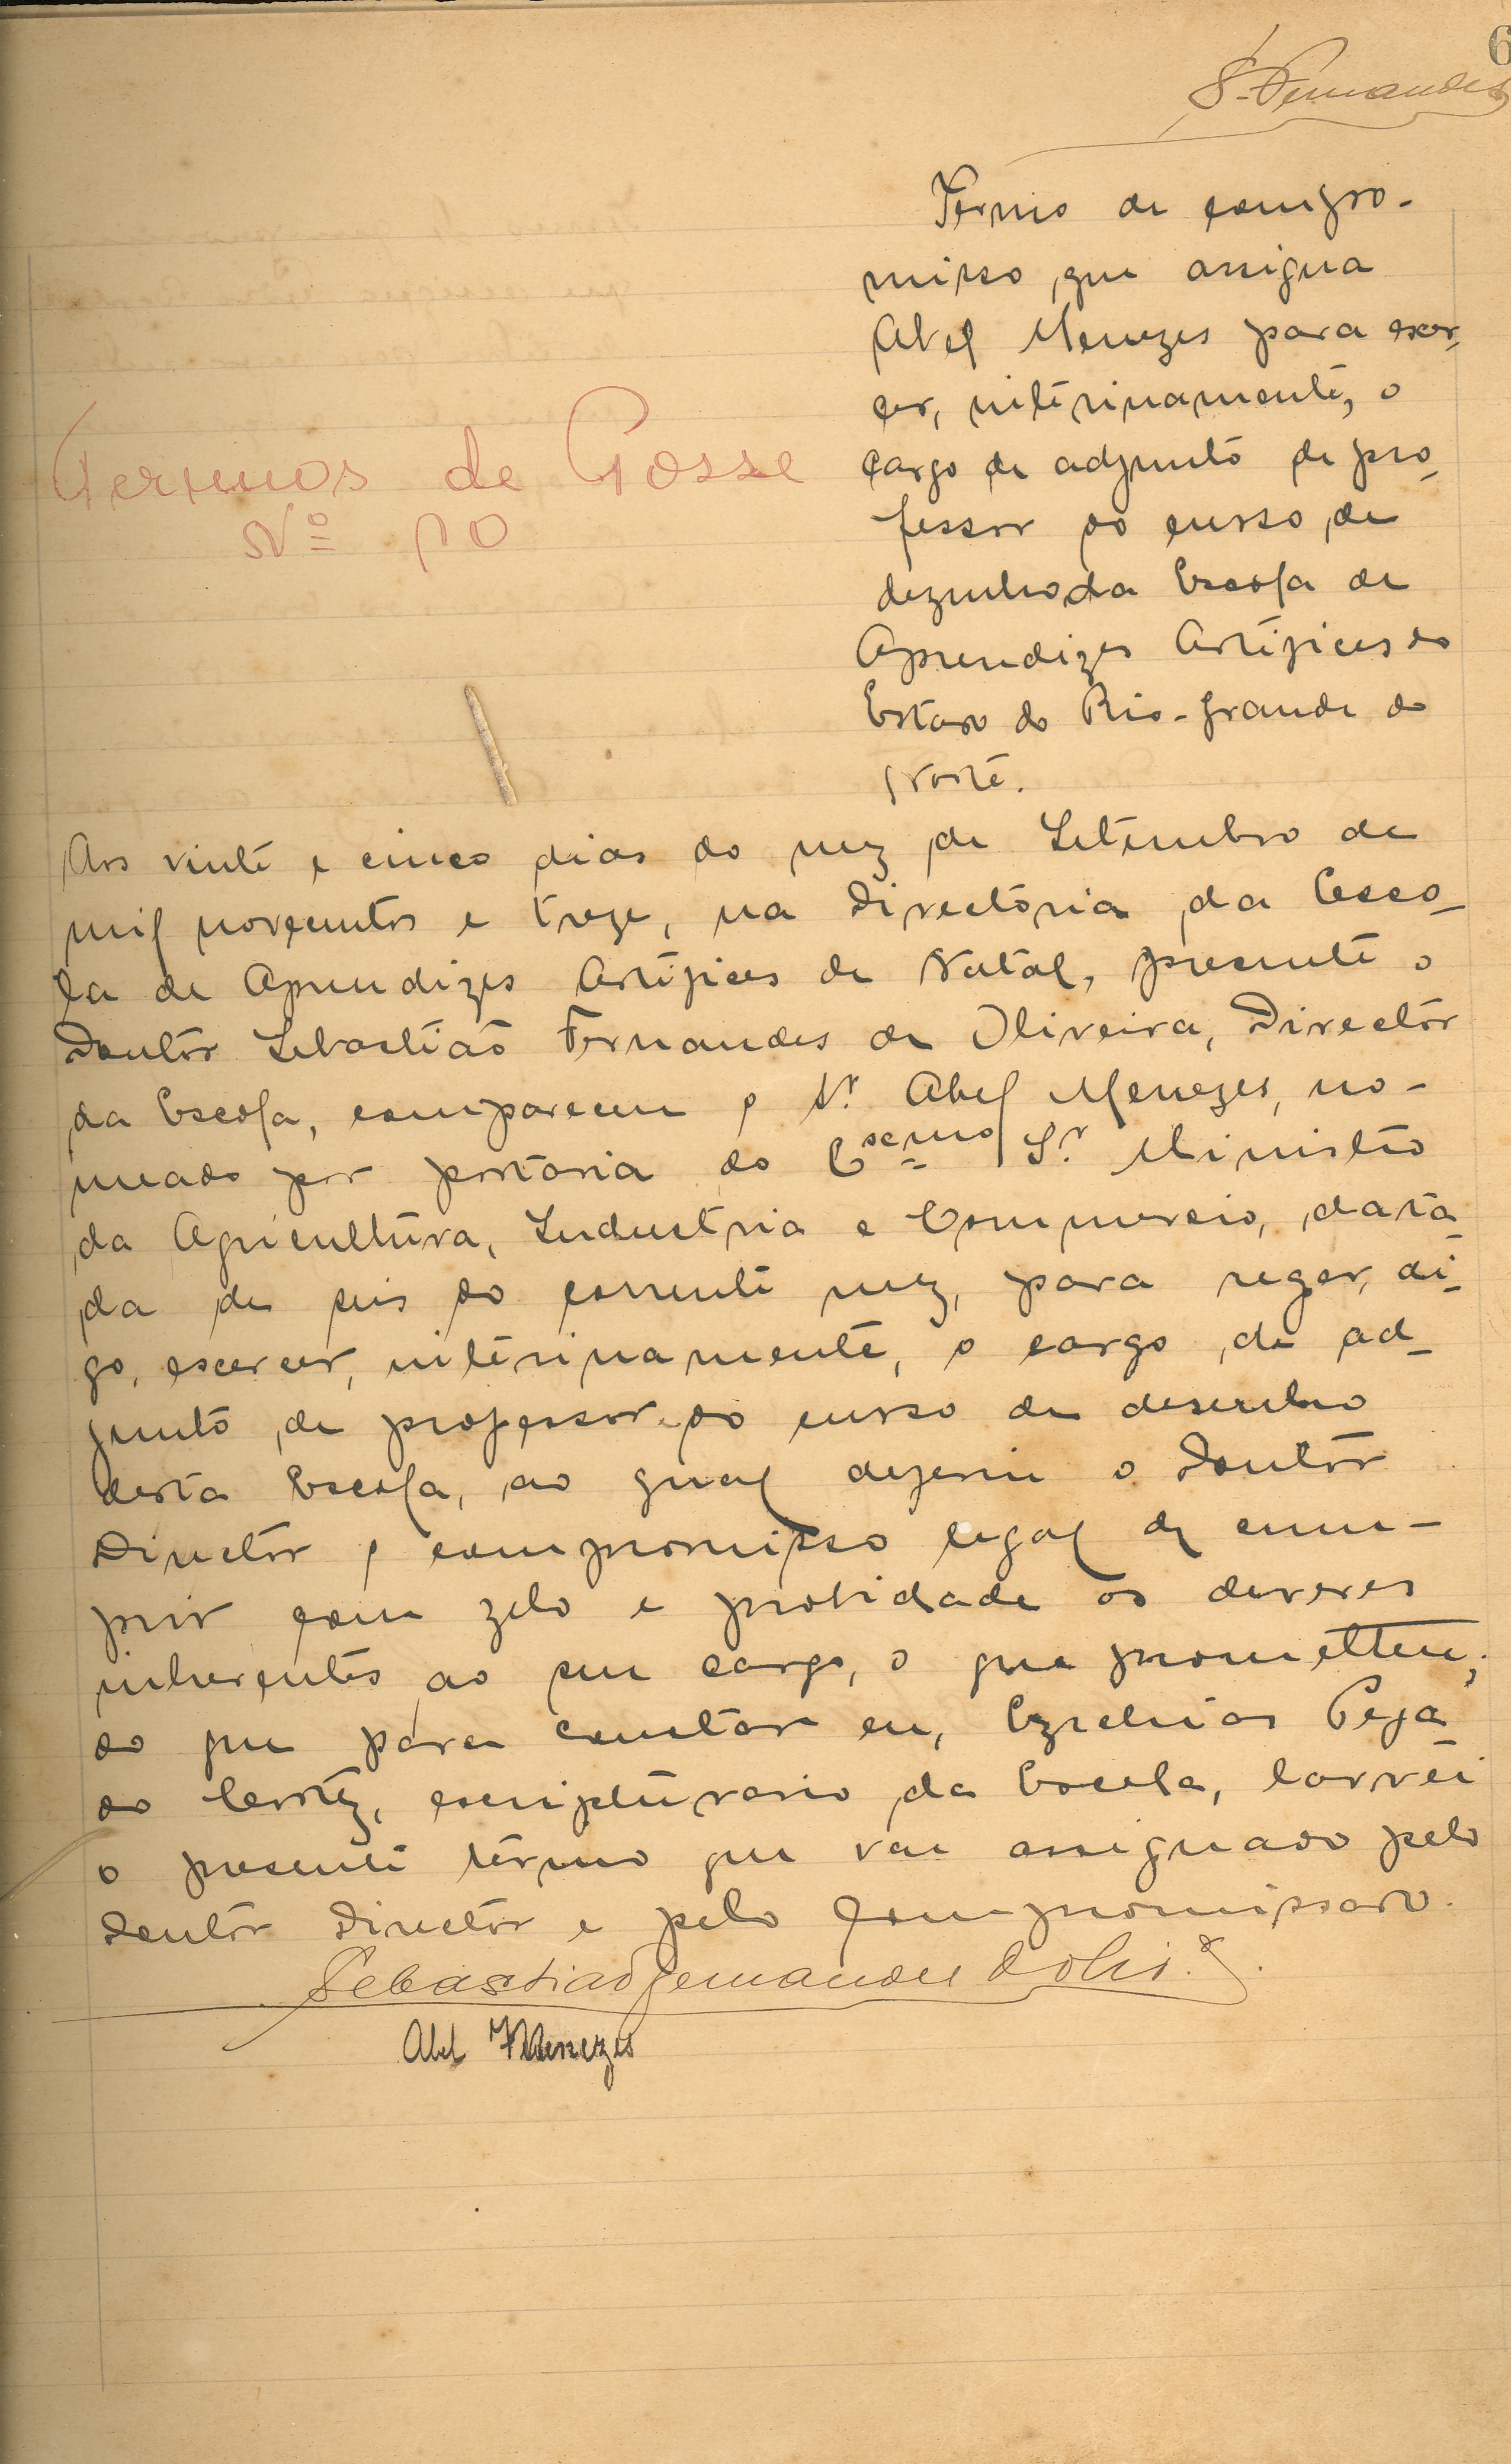 6
S. Fernandes
Termo de compro-
misso, que assigna
Abel Menezes para exer-
cer, interinamente, o
cargo de adjunto de pro-
fessor do curso de
dezenho da Escola de
Aprendizes Artifices do
Estado do Rio-Grande do
Norte.
Termos de Posse
Nº 10
Aos vinte e cinco dias do mez de Setembro de
mil novecentos e treze, na Directoria da Esco-
la de Aprendizes Artifices de Natal, presente o
Doutor Sebastião Fernandes de Oliveira, Director
da Escola, compareceu o Sr. Abel Menezes, no-
meado por portaria do Exmo Sr. Ministro
da Agricultura, Industria e Commercio, data-
da de seis do corrente mez, para reger, di-
go, exercer, interinamente, o cargo de ad-
junto de professor do curso de desenho
desta Escola, ao qual deferiu o Doutor
Director o compromisso legal de cum-
prir com zelo e probidade os deveres
inherentes ao seu cargo, o que prometteu;
do que para constar eu, Ezechias Pega-
do Cortez, escripturario da Escola, lavrei
o presente termo que vae assignado pelo
Doutor Director e pelo compromissado.
Sebastião Fernandes d'Olivª.
Abel Menezes